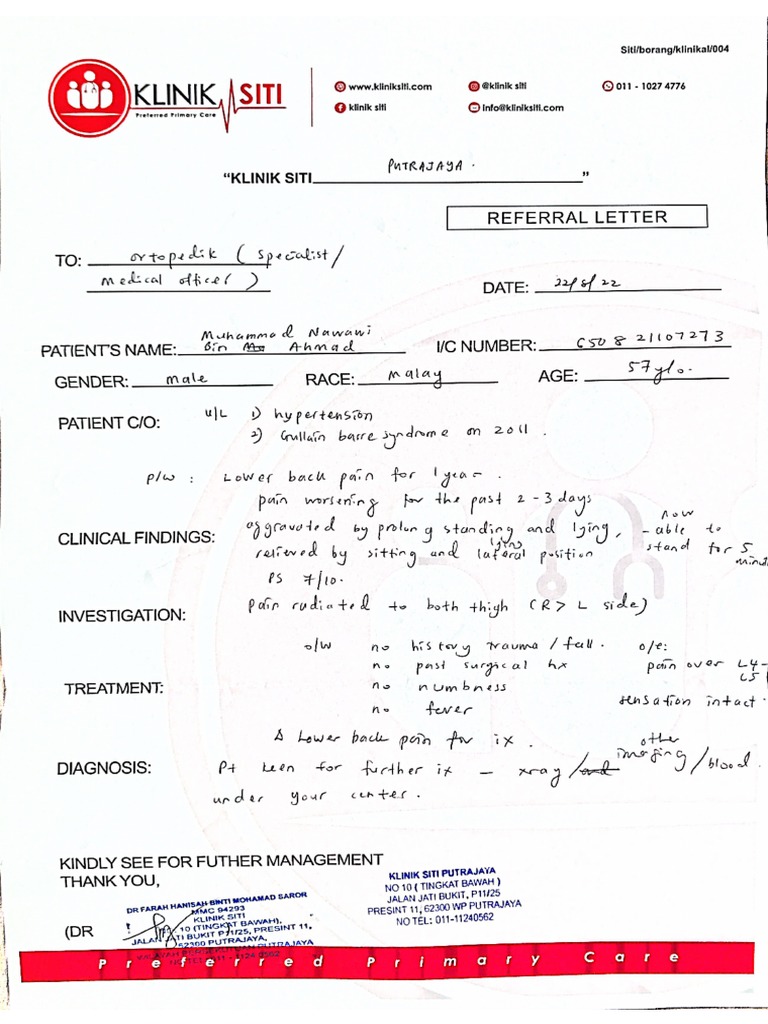 Siti/borang/klinikal/004
KLINIK SITI
Preferred Primary Care
www.kliniksiti.com
@klinik siti
011 - 1027 4776
klinik siti
info@kliniksiti.com
"KLINIK SITI PUTRAJAYA."
REFERRAL LETTER
TO: ortopedik ( specialist /
medical officer )
DATE: 22/8/22
PATIENT'S NAME: Muhammad Nawawi
Bin Ahmad
I/C NUMBER: 650821107273
GENDER: male RACE: malay AGE: 57 y/o.
PATIENT C/O: u/L 1) hypertension
2) Gullain barre syndrome on 2011.
p/w : Lower back pain for 1 year.
pain worsening for the past 2-3 days
CLINICAL FINDINGS: aggravated by prolong standing and lying, - now able to
relieved by sitting and lying lateral position stand for 5 minute
PS 7/10.
INVESTIGATION: pain radiated to both thigh (R > L side)
o/w no history trauma / fall. o/e:
no past surgical hx pain over L4-
L5
TREATMENT: no numbness
sensation intact.
no fever
Δ Lower back pain for ix.
DIAGNOSIS: Pt keen for further ix - xray / other imaging / blood.
under your center.
KINDLY SEE FOR FUTHER MANAGEMENT
THANK YOU,
(DR
DR FARAH HANISAH BINTI MOHAMAD SAROR
MMC 94293
KLINIK SITI
10 (TINGKAT BAWAH),
JALAN JATI BUKIT P11/25, PRESINT 11,
62300 PUTRAJAYA,
KLINIK SITI PUTRAJAYA
NO 10 ( TINGKAT BAWAH )
JALAN JATI BUKIT, P11/25
PRESINT 11, 62300 WP PUTRAJAYA
NO TEL: 011-11240562
Preferred Primary Care